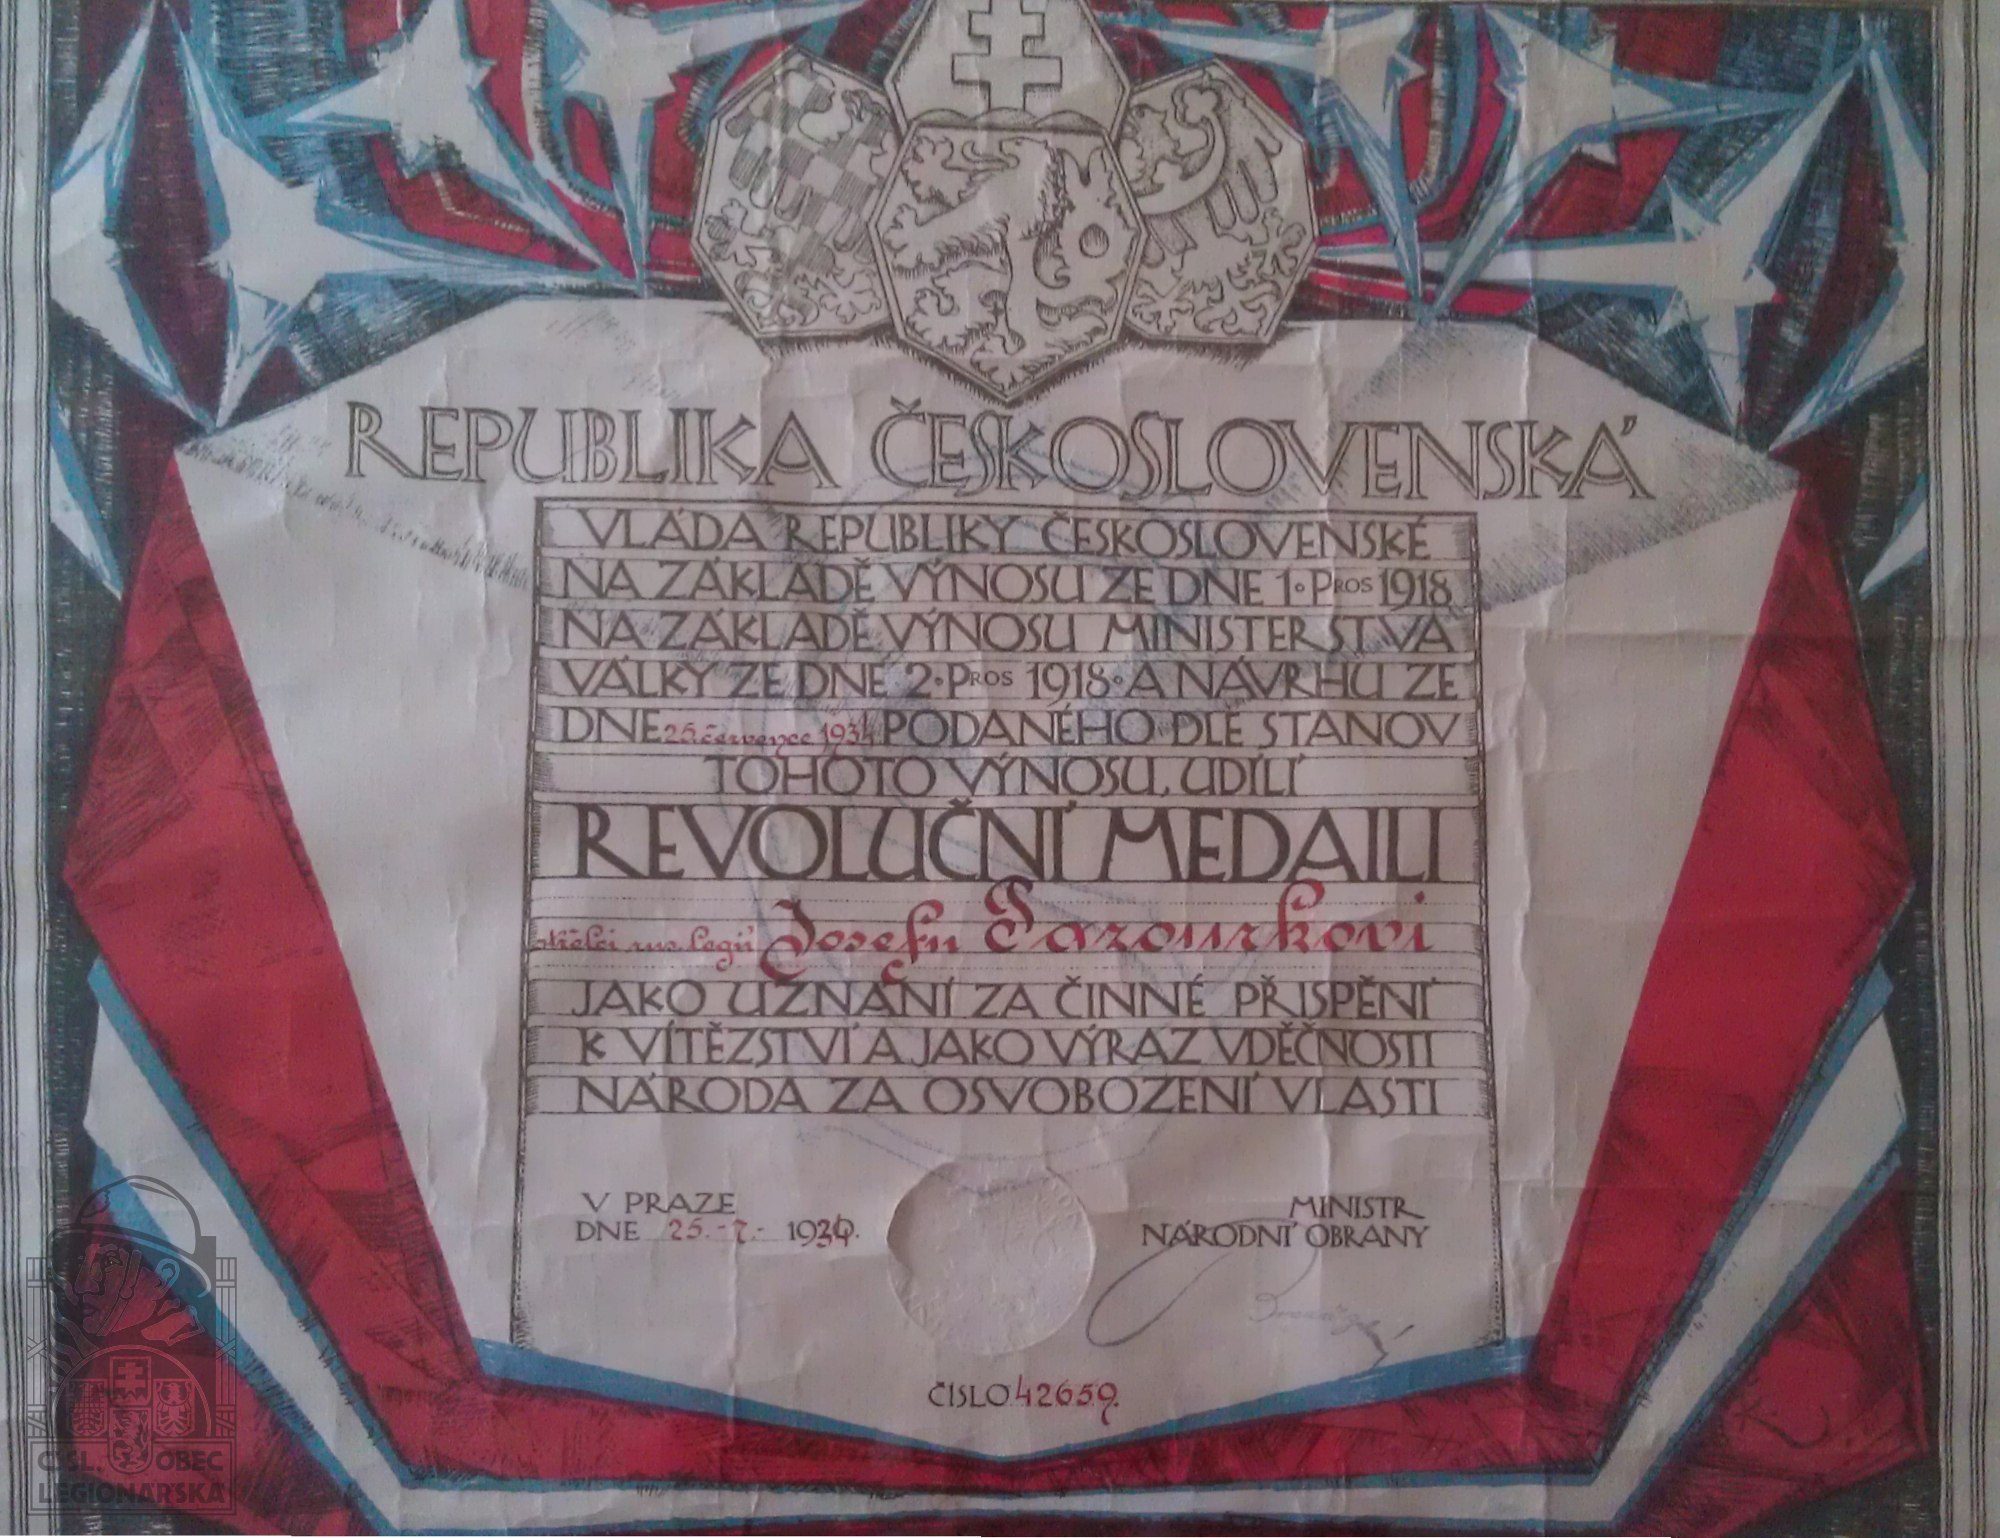 REPUBLIKA ČESKOSLOVENSKÁ
VLÁDA REPUBLIKY ČESKOSLOVENSKÉ
NA ZÁKLADĚ VÝNOSU ZE DNE 1. PROS 1918
NA ZÁKLADĚ VÝNOSU MINISTERSTVA
VÁLKY ZE DNE 2. PROS 1918. A NÁVRHU ZE
DNE 25. července 1934 PODANÉHO DLE STANOV
TOHOTO VÝNOSU, UDÍLÍ
REVOLUČNÍ MEDAILI
střelci rus. legií Josefu Pazourkovi
JAKO UZNÁNÍ ZA ČINNÉ PŘISPĚNÍ
K VÍTĚZSTVÍ A JAKO VÝRAZ VDĚČNOSTI
NÁRODA ZA OSVOBOZENÍ VLASTI
V PRAZE
DNE 25.-7.- 1934.
MINISTR
NÁRODNÍ OBRANY
ČÍSLO 42659.
ČSL. OBEC
LEGIONÁŘSKÁ